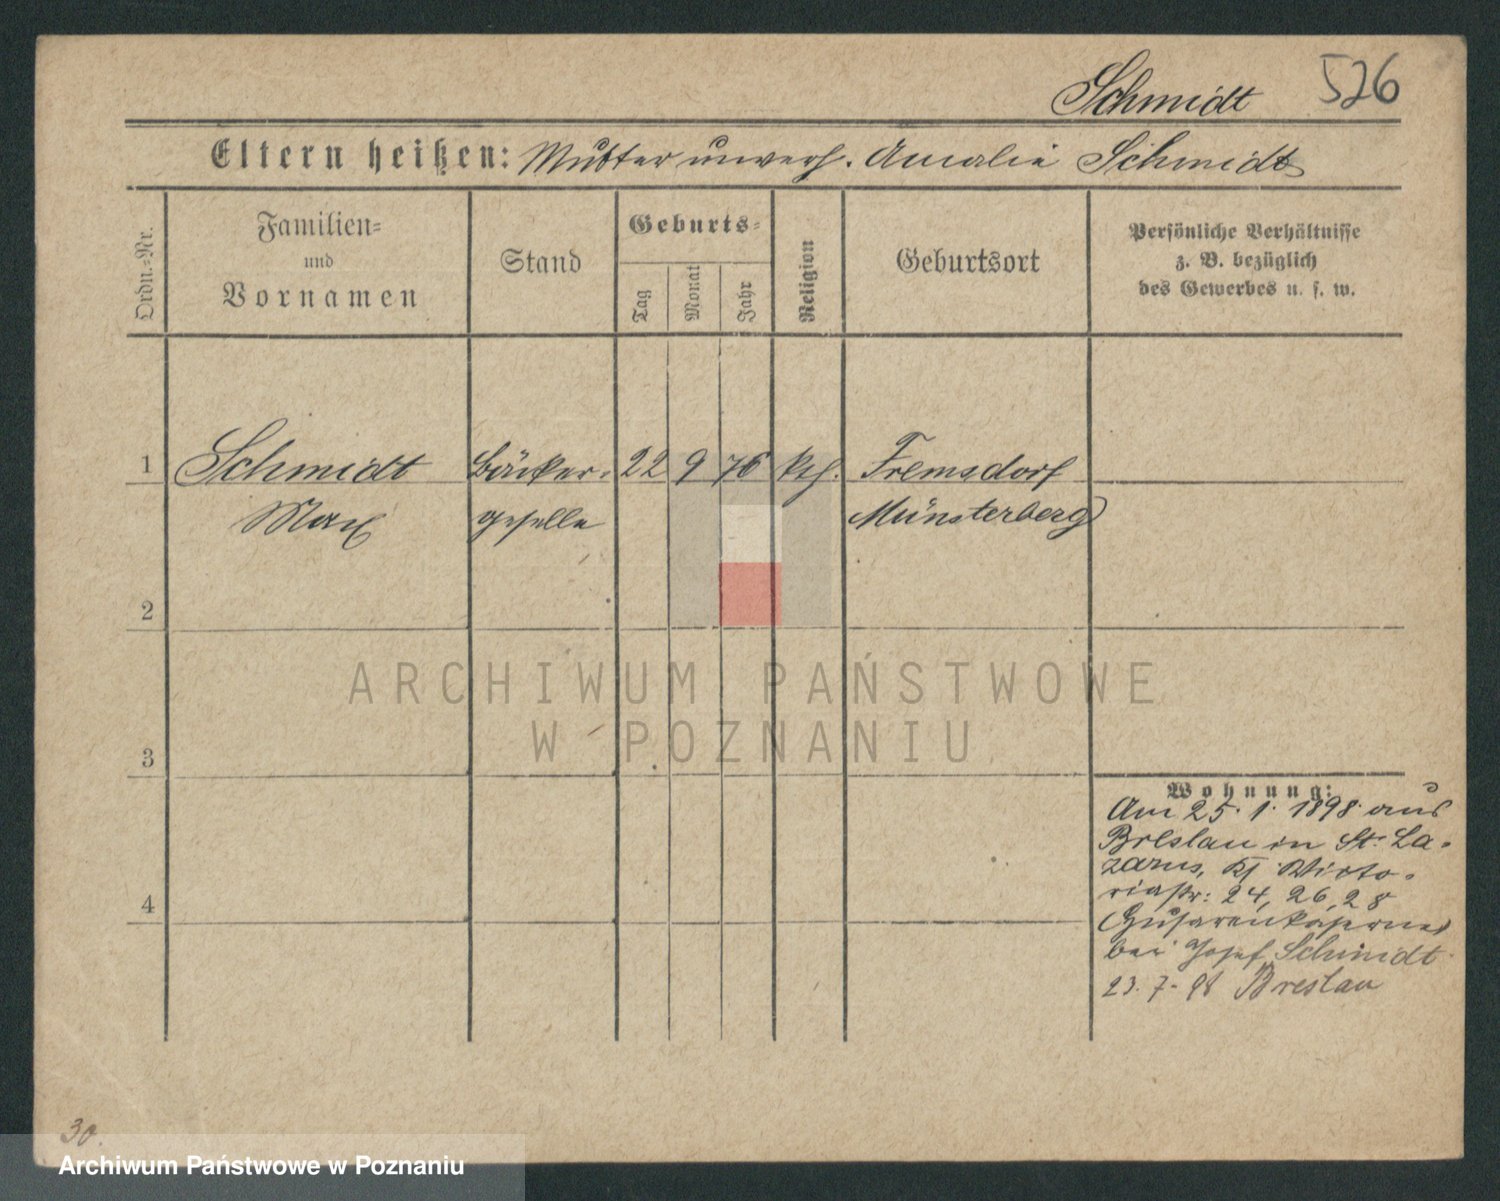 Schmidt 526
Eltern heißen: Mutter unverh. Amalie Schmidt
Ordn.=Nr.
Familien=
und
Vornamen
Stand
Geburts=
Tag
Monat
Jahr
Religion
Geburtsort
Persönliche Verhältnisse
z. B. bezüglich
des Gewerbes u. s. w.
1 Schmidt Bäcker- 22 9 76 kth. Fremsdorf
Max geselle Münsterberg
2
ARCHIWUM PAŃSTWOWE
W POZNANIU
3
Wohnung:
Am 25. 1. 1898 aus
Breslau in St. La-
zarus, Victo-
riastr: 24, 26, 28
4
Husarenkaserne
bei Josef Schmidt
23. 7. 98 Breslau
30.
Archiwum Państwowe w Poznaniu